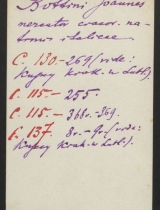 Bottini Joannes
mercator cracov. na-
tione italice
C. 130. - 269 (vide:
Kupcy krak. w Lubl.).
C. 115. - 255.
C. 115. - 368v.-369.
C. 137. 8v.-9v. (vide:
Kupcy krak. w Lubl.).